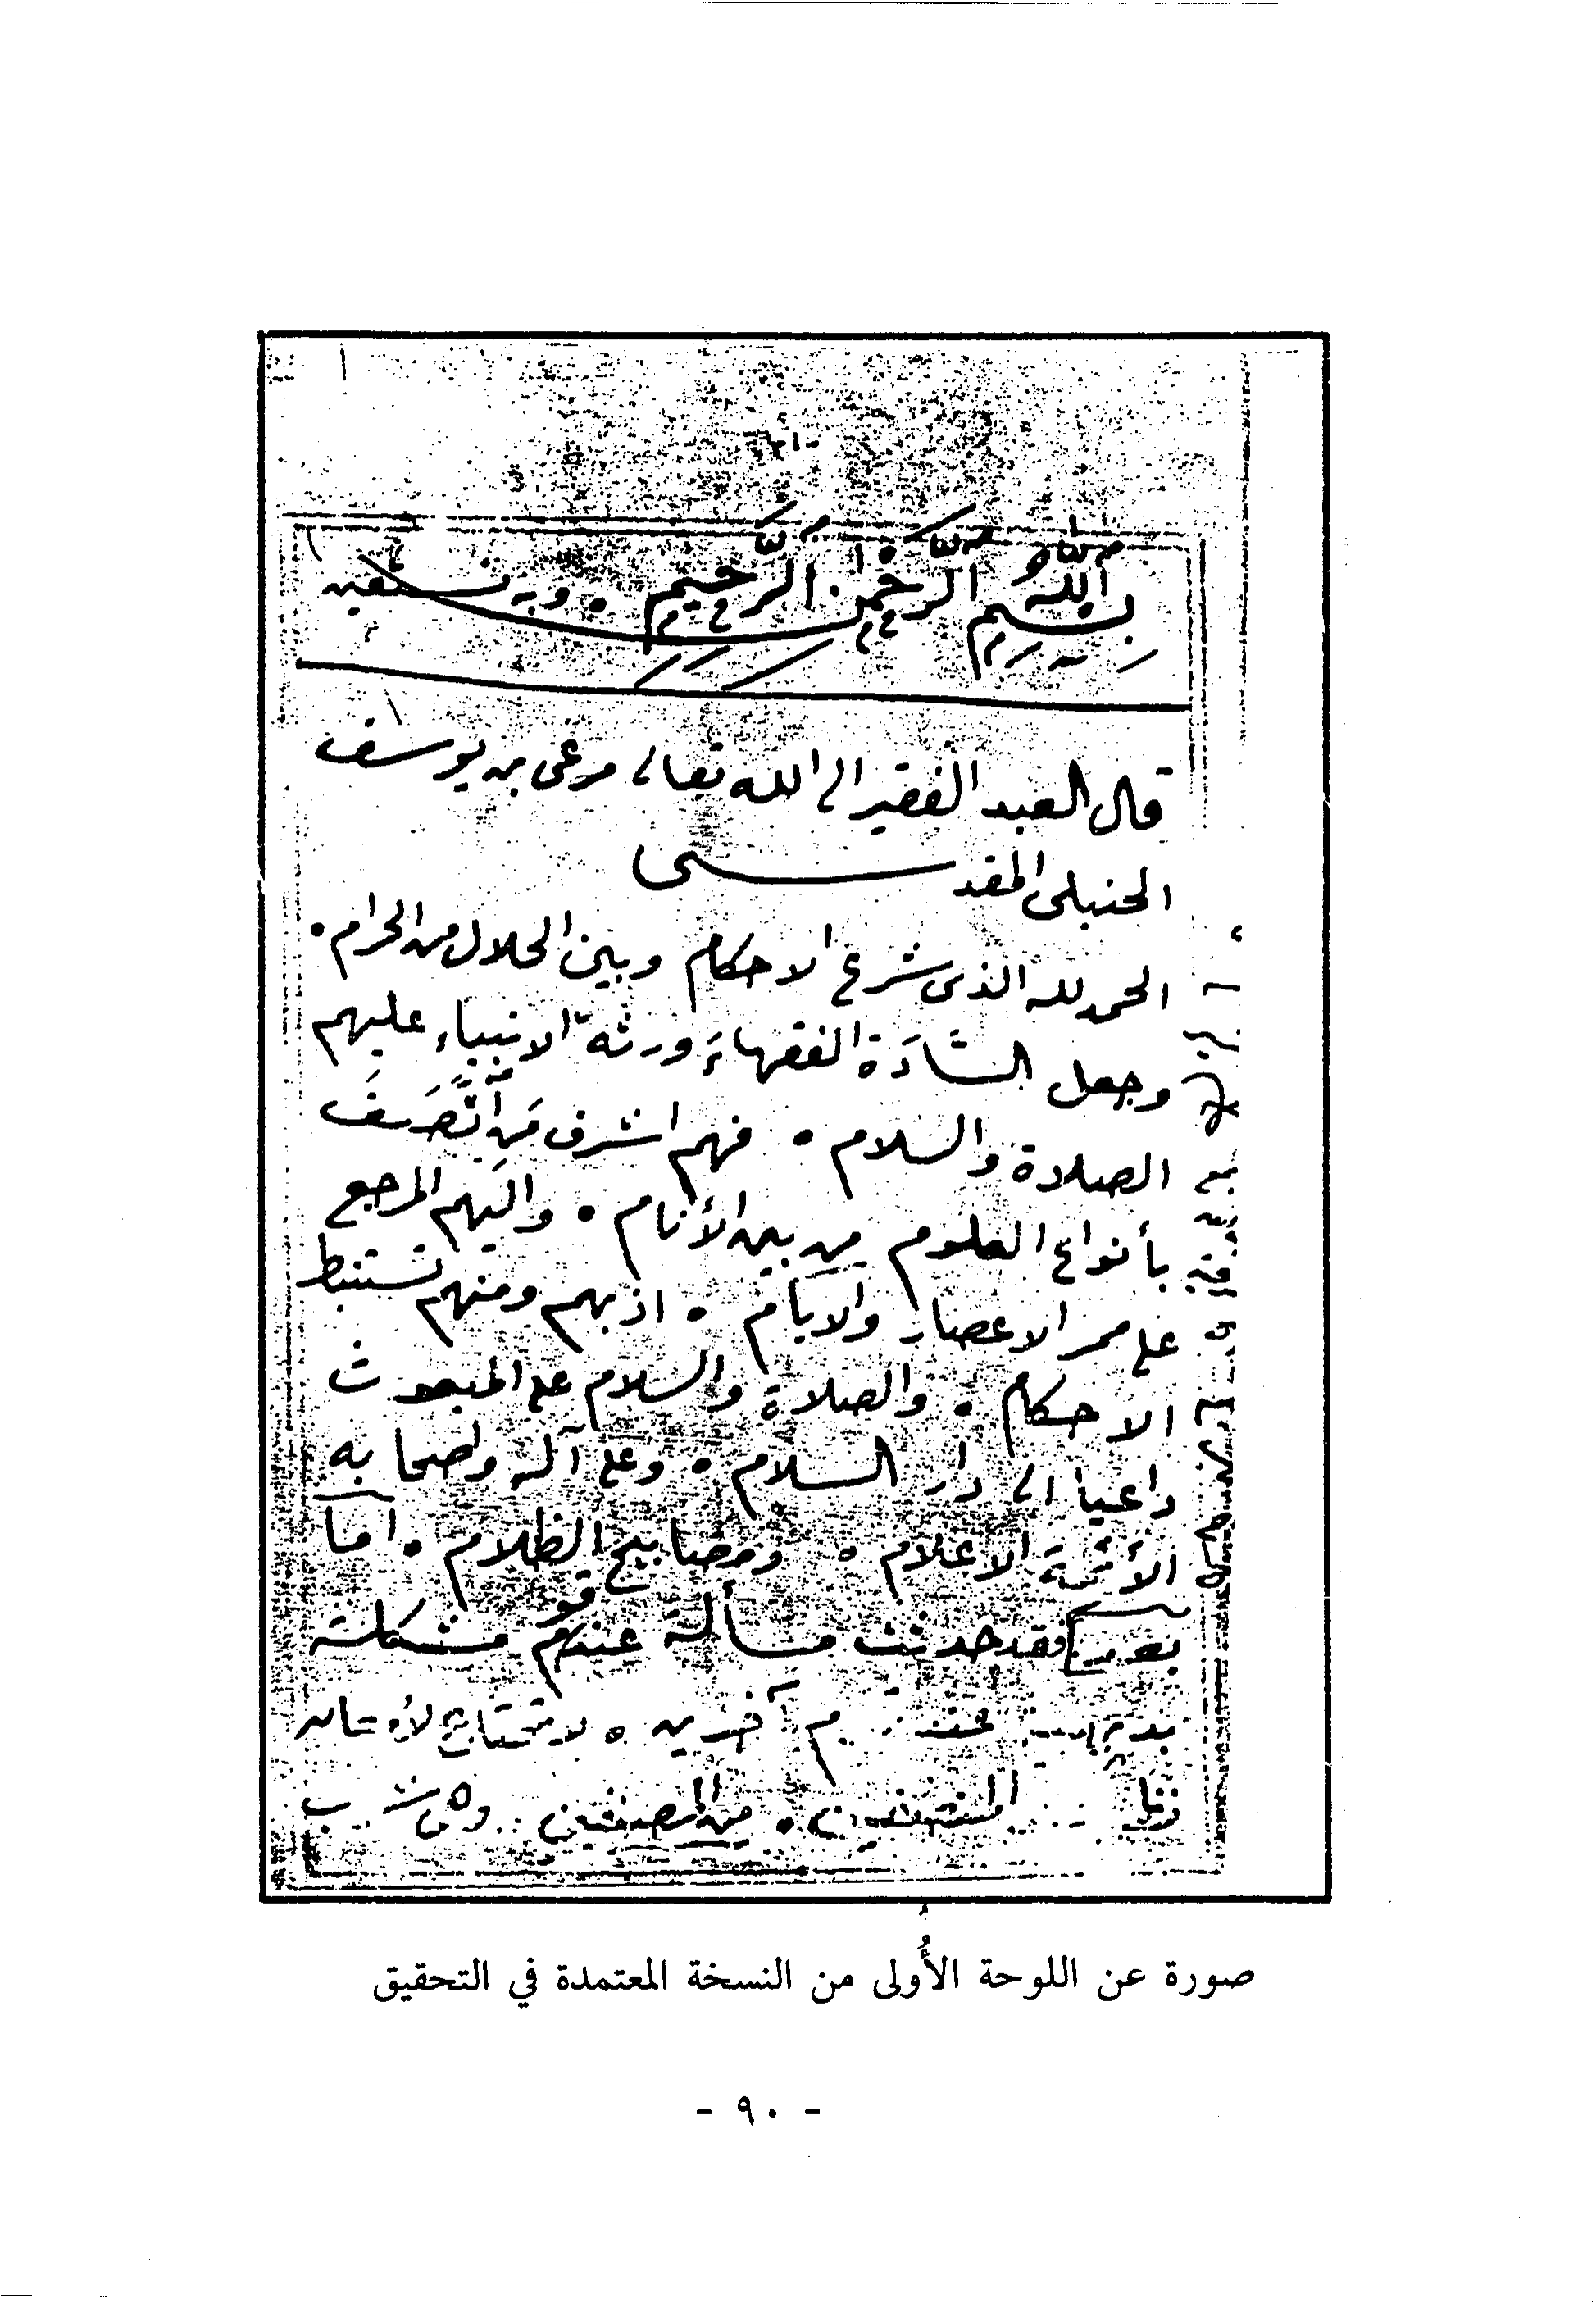 بسم الله الرحمن الرحيم • وبه نستعين
قال العبد الفقير الى الله تعالى مرعى بن يوسف
الحنبلى المقدسى
الحمد لله الذى شرع الاحكام وبين الحلال من الحرام •
وجعل السَّادَة الفقهاءَ ورثة الانبياء عليهم
الصلاة والسلام • فهم اشرف مَن اتَّصَفَ
بأنواع العلوم من بين الأنام • واليهم المرجع
على ممر الاعصار والايام • اذ بهم ومنهم تستنبط
الاحكام • والصلاة والسلام على المبعوث
داعيا الى دار السلام • وعلى آله واصحابه
الأئمة الاعلام • ومصابيح الظلام • اما
بعد فقد حدثت مسألة عند قوم مشكلة
عند آخرين • لا تحتاج
من المصنفين
صورة عن اللوحة الأُولى من النسخة المعتمدة في التحقيق
- ٩٠ -